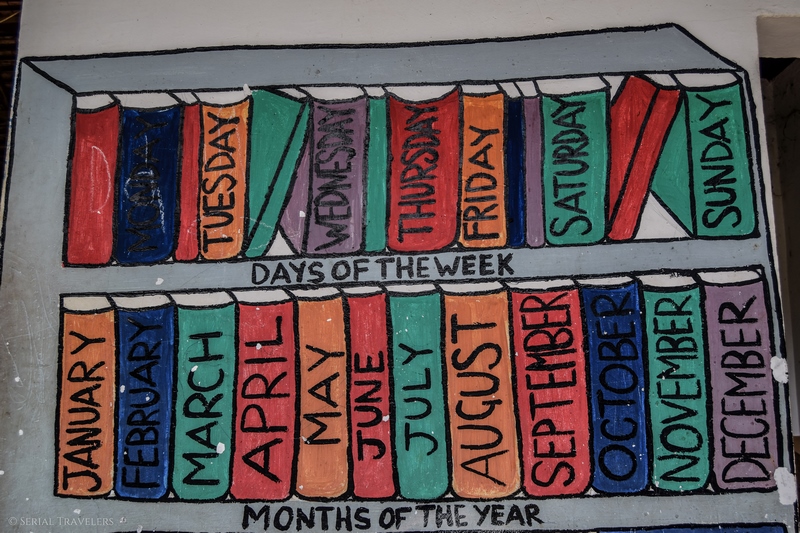 MONDAY
TUESDAY
WEDNESDAY
THURSDAY
FRIDAY
SATURDAY
SUNDAY
DAYS OF THE WEEK
JANUARY
FEBRUARY
MARCH
APRIL
MAY
JUNE
JULY
AUGUST
SEPTEMBER
OCTOBER
NOVEMBER
DECEMBER
MONTHS OF THE YEAR
© SERIAL TRAVELERS